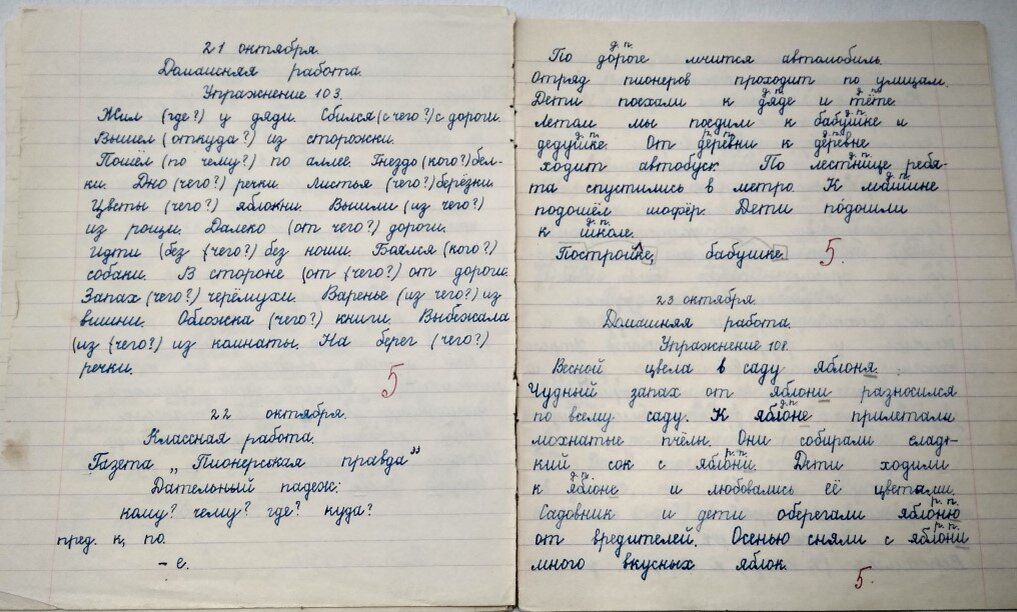 21 октября.
Домашняя работа.
Упражнение 103.
Жил (где?) у дяди. Сбился (с чего?) с дороги.
Вышел (откуда?) из сторожки.
Пошёл (по чему?) по аллее. Гнездо (кого?) бел-
ки. Дно (чего?) речки. Листья (чего?) берёзки.
Цветы (чего?) яблони. Вышли (из чего?)
из рощи. Далеко (от чего?) дороги.
Идти (без (чего?) без ноши. Боялся (кого?)
собаки. В стороне (от (чего?) от дороги.
Запах (чего?) черёмухи. Варенье (из чего?) из
вишни. Обложка (чего?) книги. Выбежала
(из (чего?) из комнаты. На берег (чего?)
речки.
5
22 октября.
Классная работа.
Газета „Пионерская правда”
Дательный падеж:
кому? чему? где? куда?
пред. к, по.
- е.
д.п.
По дороге мчится автомобиль.
Отряд пионеров проходит по улицам.
д.п. д.п.
Дети поехали к дяде и тёте.
д.п.
Летом мы поедим к бабушке и
д.п. р.п. д.п.
дедушке. От деревни к деревне
д.п.
ходит автобус. По лестнице ребя-
д.п.
та спустились в метро. К машине
подошёл шофёр. Дети подошли
д.п.
к школе.
Постройке, бабушке. 5.
23 октября.
Домашняя работа.
Упражнение 108.
Весной цвела в саду яблоня.
Чудный запах от яблони разносился
д.п.
по всему саду. К яблоне прилетали
мохнатые пчёлы. Они собирали слад-
р.п.
кий сок с яблони. Дети ходили
д.п.
к яблоне и любовались её цветами.
р.п.
Садовник и дети оберегали яблоню
р.п.
от вредителей. Осенью сняли с яблони
много вкусных яблок.
5.